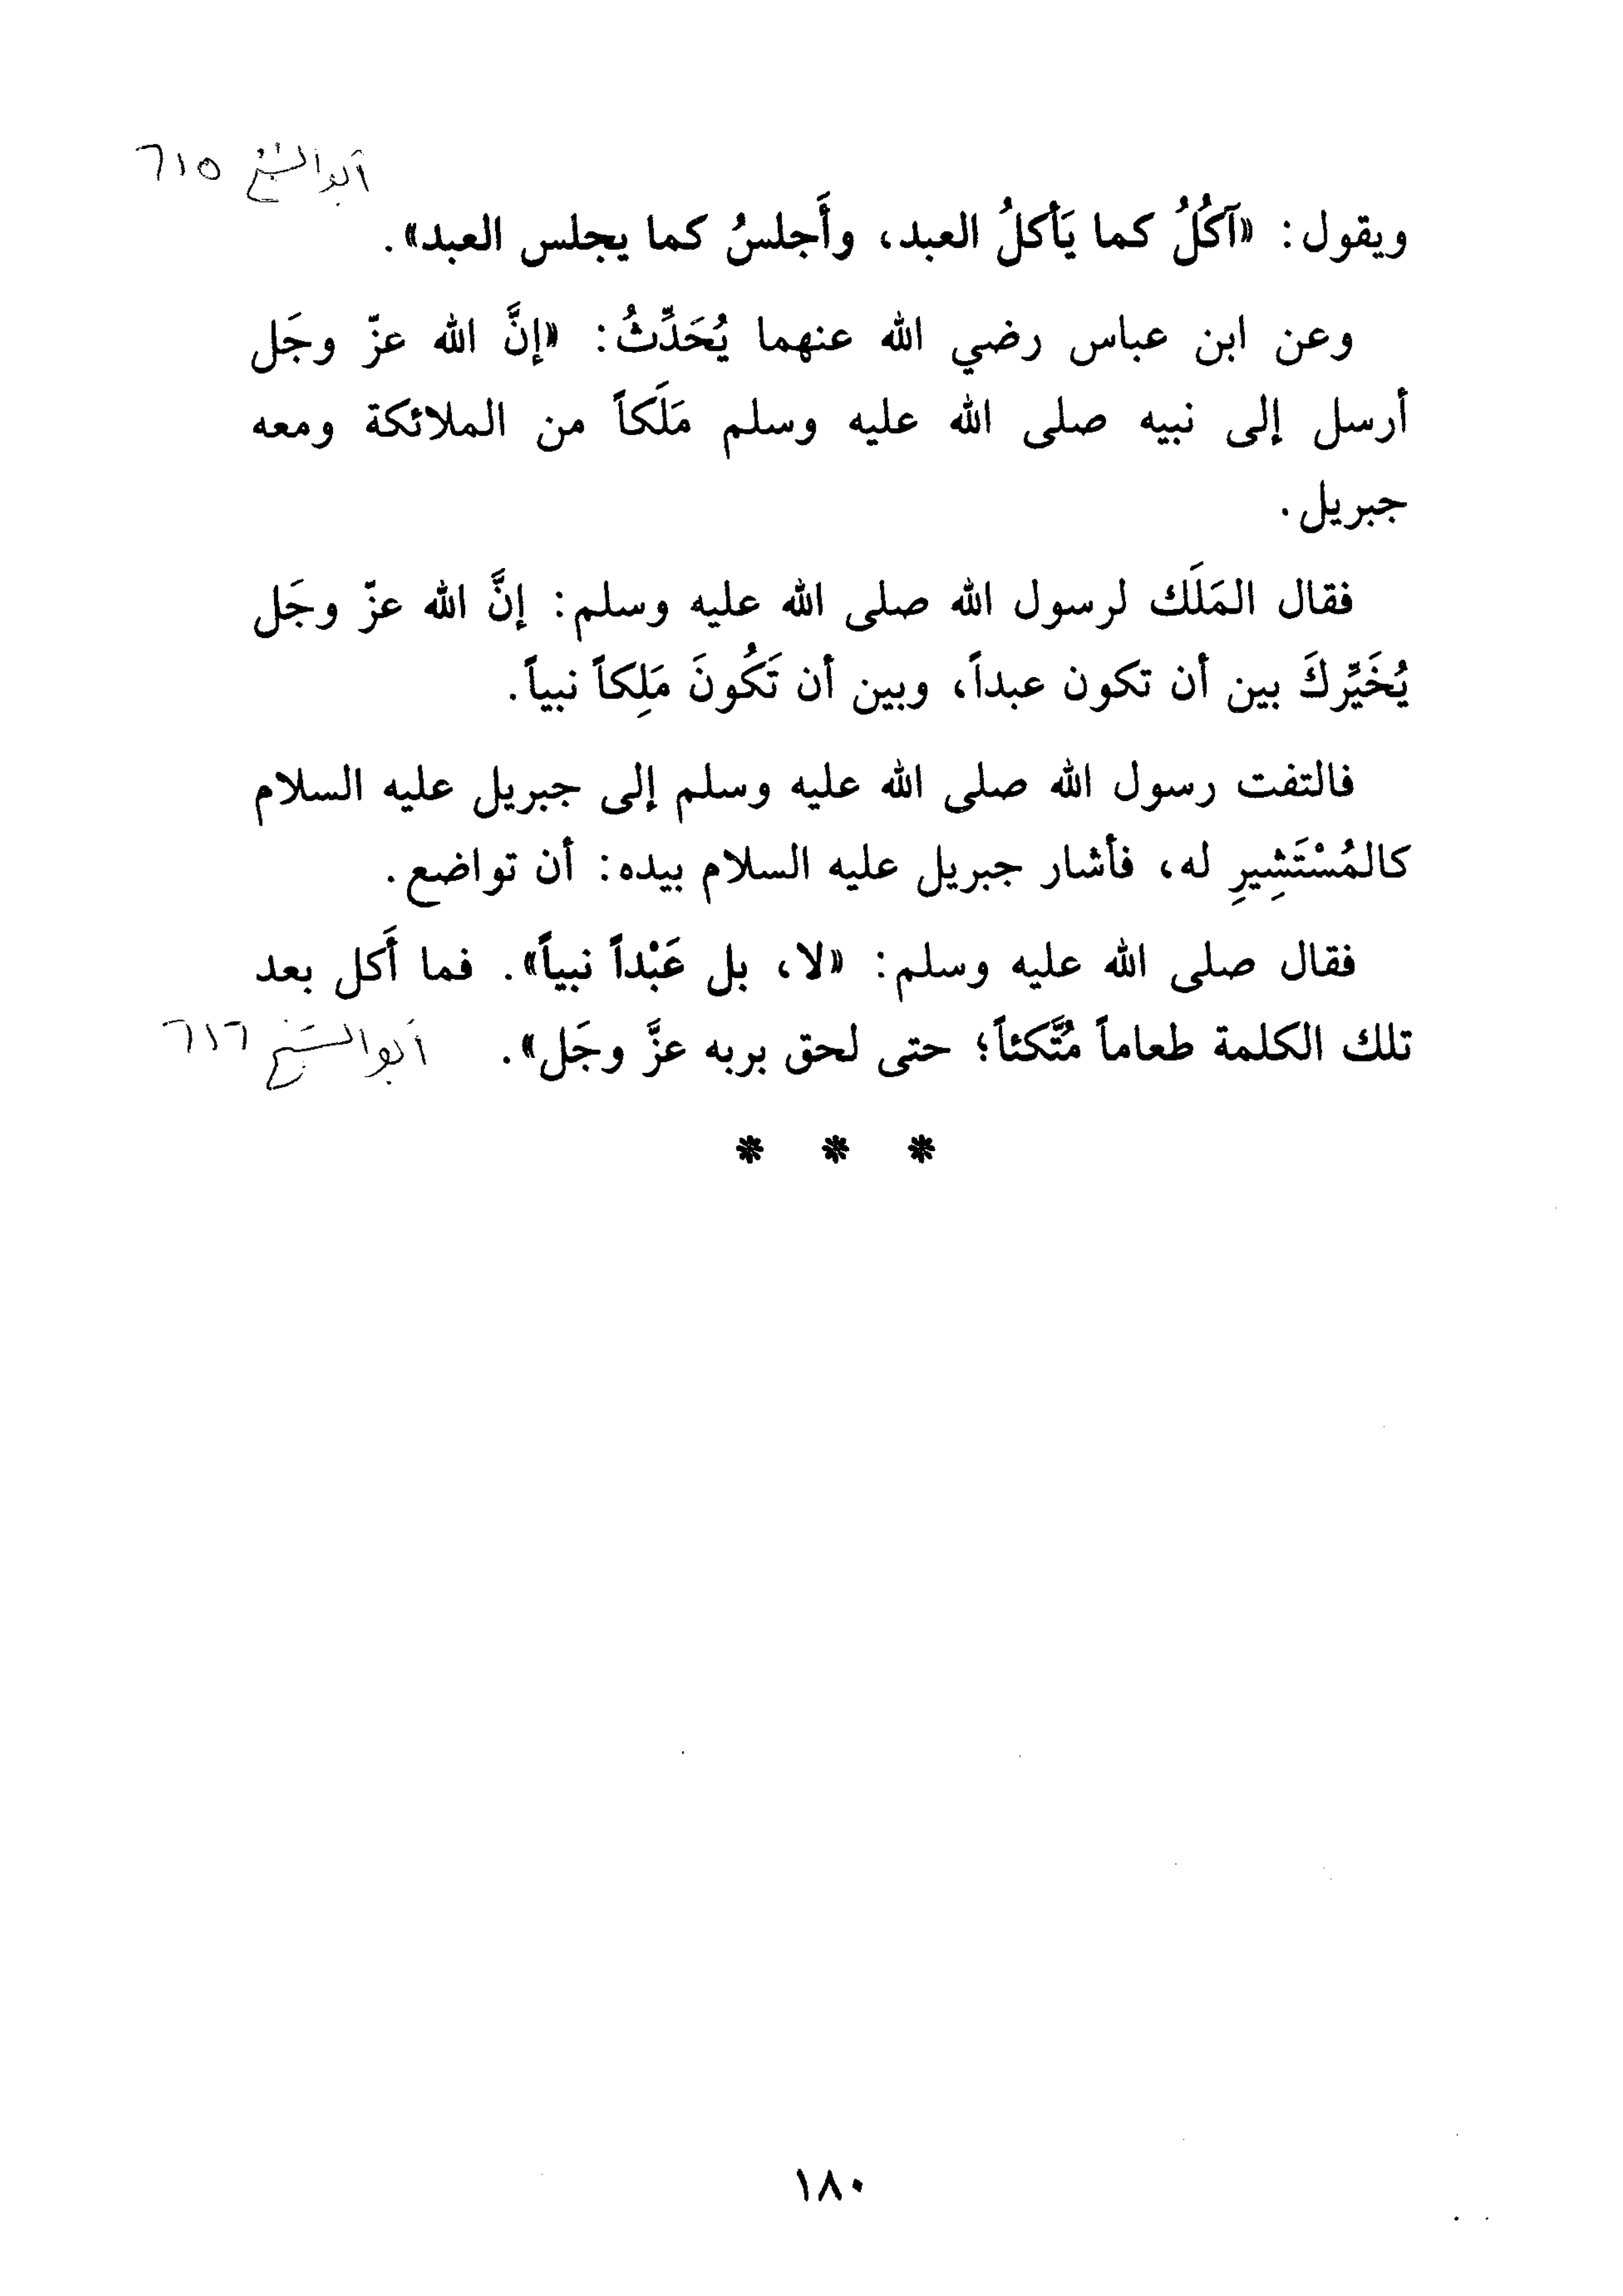 أبو الشيخ ٦١٥
ويقول: «آكُلُ كما يَأكلُ العبد، وأَجلسُ كما يجلس العبد».
وعن ابن عباس رضي الله عنهما يُحَدِّثُ: «إنَّ الله عزّ وجَل
أرسل إلى نبيه صلى الله عليه وسلم مَلَكاً من الملائكة ومعه
جبريل.
فقال المَلَك لرسول الله صلى الله عليه وسلم: إنَّ الله عزّ وجَل
يُخَيِّركَ بين أن تكون عبداً، وبين أن تَكُونَ مَلِكاً نبياً.
فالتفت رسول الله صلى الله عليه وسلم إلى جبريل عليه السلام
كالمُسْتَشِيرِ له، فأشار جبريل عليه السلام بيده: أن تواضع.
فقال صلى الله عليه وسلم: «لا، بل عَبْداً نبياً». فما أَكل بعد
تلك الكلمة طعاماً مُتَّكئاً؛ حتى لحق بربه عزَّ وجَل». أبو الشيخ ٦١٦
* * *
١٨٠